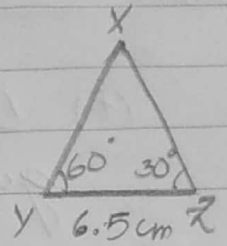 X
60° 30°
Y 6.5cm Z